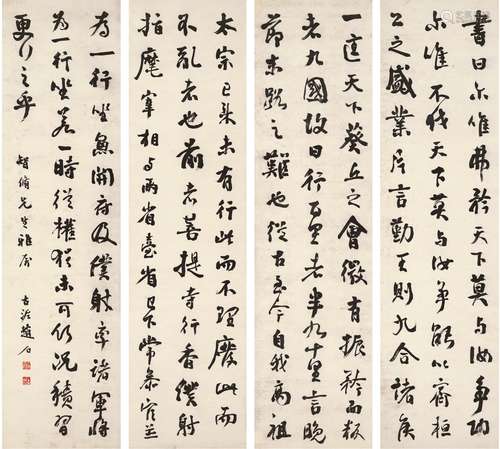 書曰尔惟弗矜天下莫与汝争功
尔惟不伐天下莫与汝争能以齊桓
公之盛業片言勤王則九合諸侯
一匡天下葵丘之會微有振矜而叛
者九國故曰行百里者半九十里言晚
節末路之難也從古至今自我高祖
太宗已来未有行此而不理廢此而
不亂者也前者菩提寺行香僕射
指麾宰相与兩省臺省已下常叅官並
為一行坐魚開府及僕射率諸軍將
為一行坐若一時從權猶未可仍況積習
更行之乎
先生雅属
古泥趙石